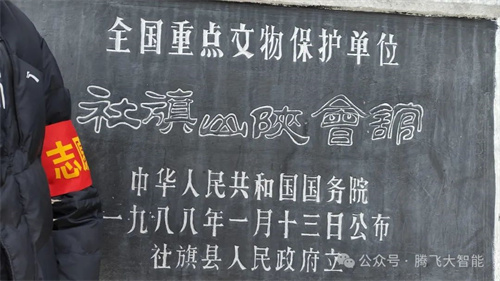 全国重点文物保护单位
社旗山陕會館
中华人民共和国国务院
一九八八年一月十三日公布
社旗县人民政府立
志
公众号·腾飞大智能